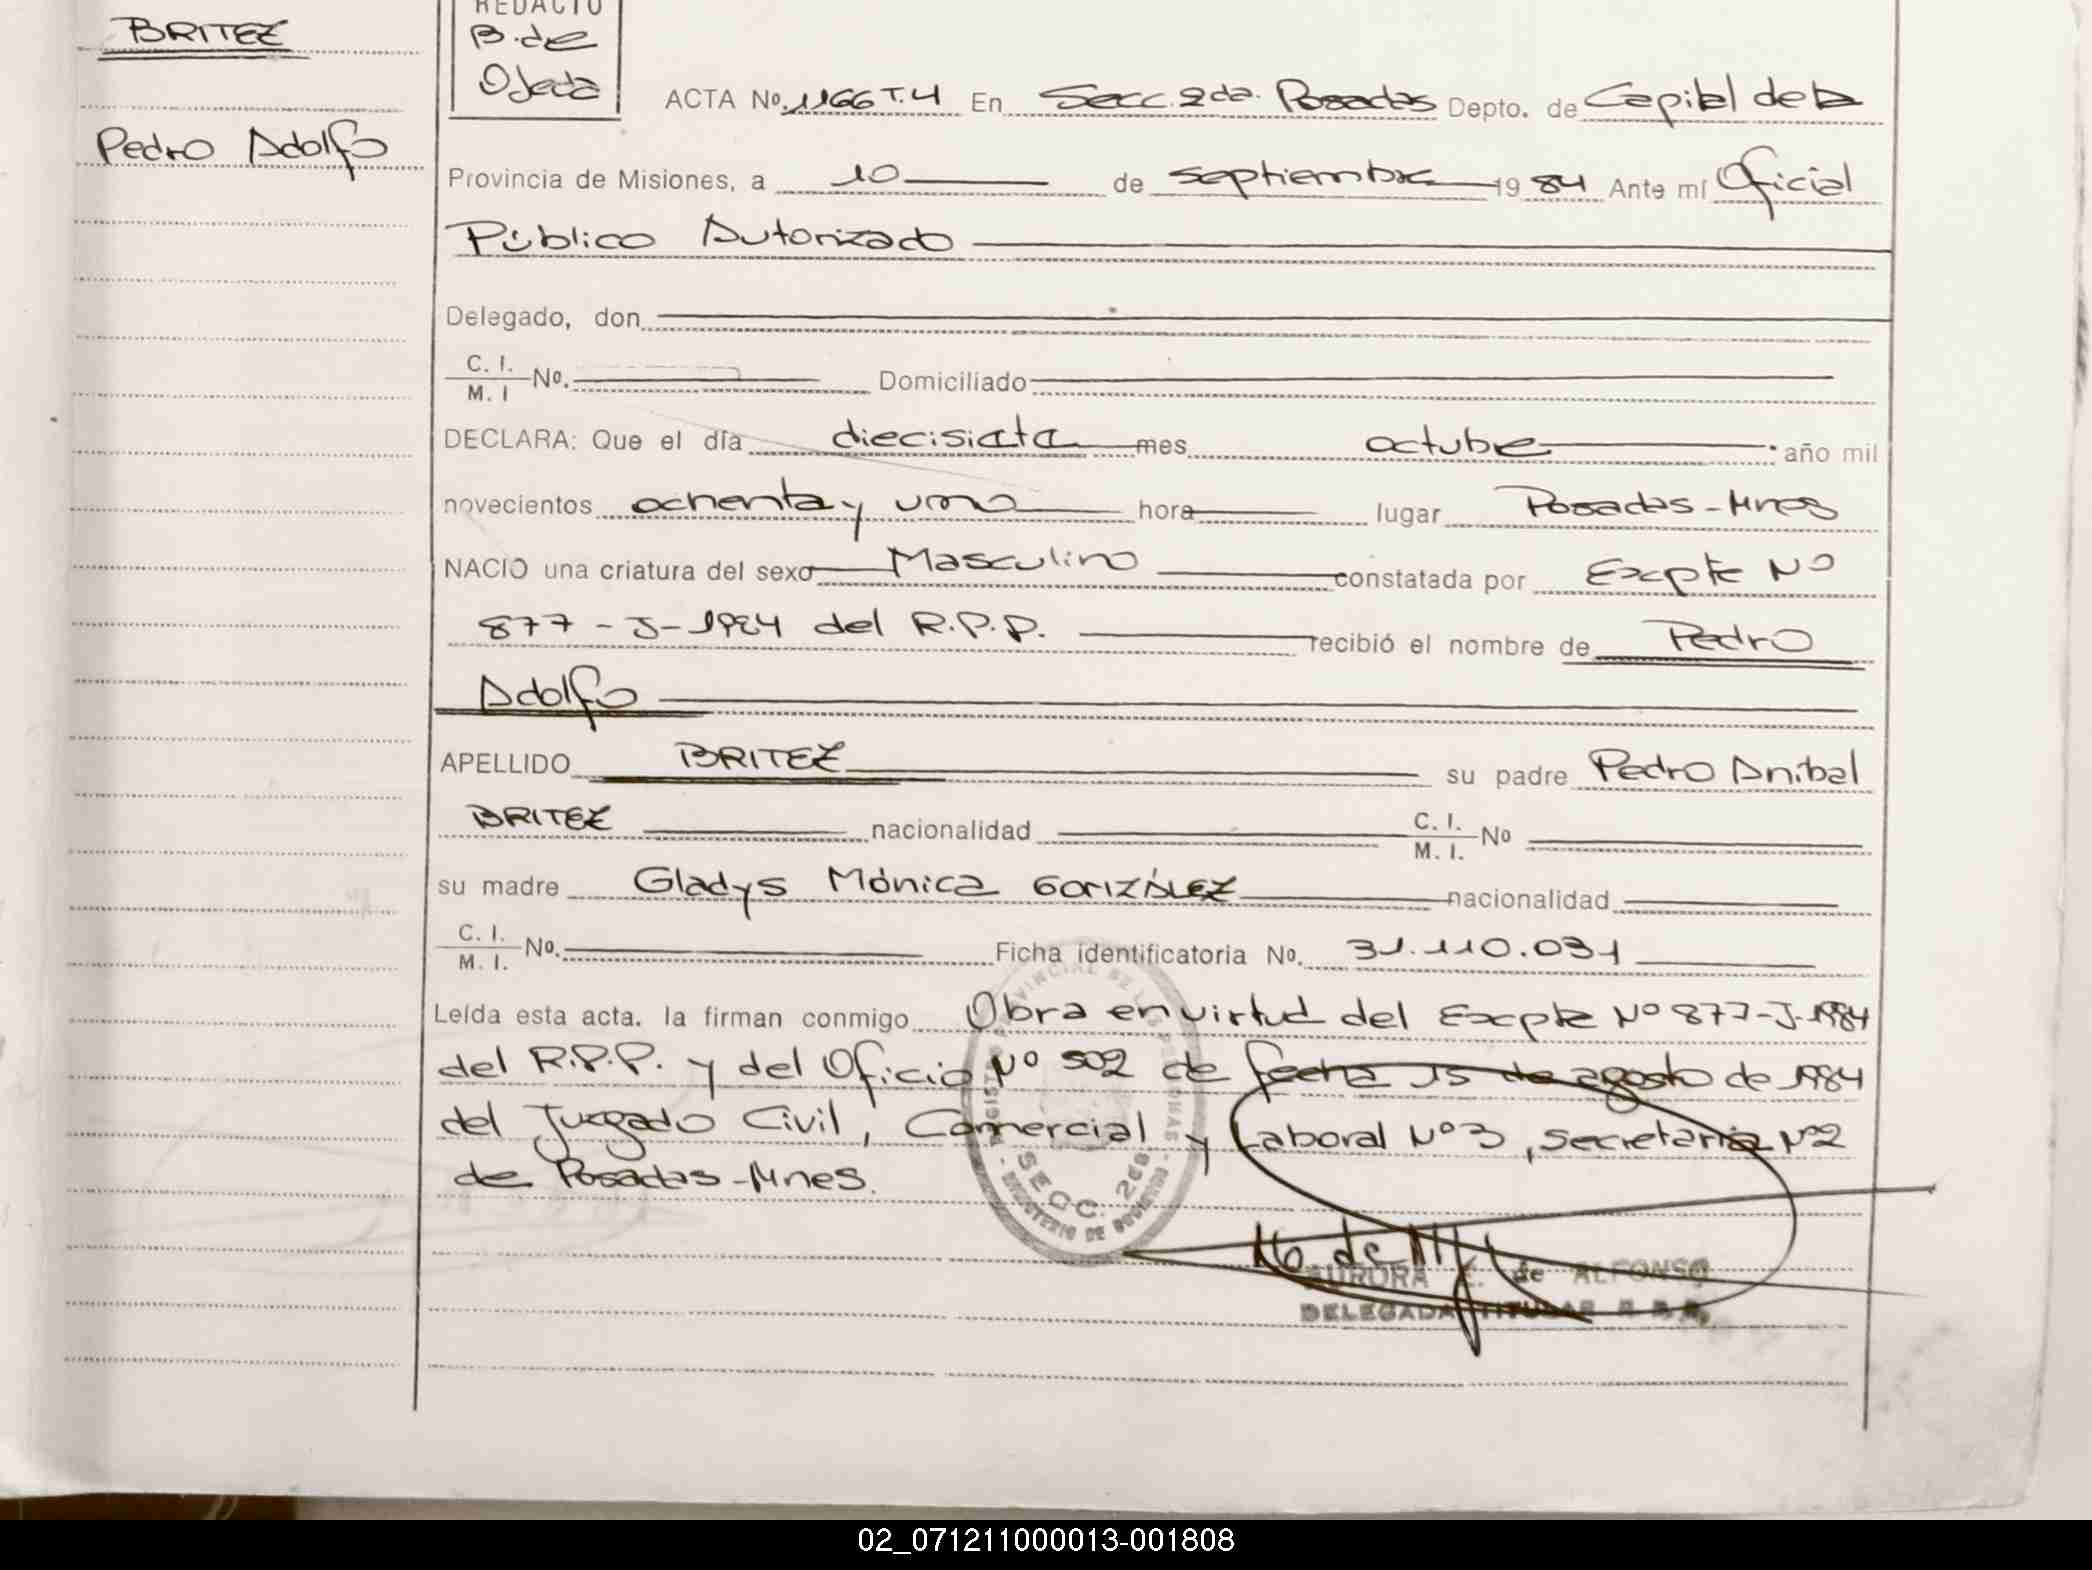 BRITEZ
Pedro Adolfo
REDACTO
B. de
Ojeda
ACTA No. 1166 T.4 En Secc. 2da. Posadas Depto. de Capital de la
Provincia de Misiones, a 10 de septiembre 19 84 Ante mí Oficial
Público Autorizado
Delegado, don
C. I.
M. I No. Domiciliado
DECLARA: Que el día diecisiete mes octubre año mil
novecientos ochenta y uno hora lugar Posadas-Mnes
NACIO una criatura del sexo Masculino constatada por Excpte Nº
877-J-1984 del R.P.P. recibió el nombre de Pedro
Adolfo
APELLIDO BRITEZ su padre Pedro Anibal
BRITEZ nacionalidad C. I.
M. I. No
su madre Gladys Mónica GONZÁLEZ nacionalidad
C. I.
M. I. No. Ficha identificatoria No. 31.110.031
Leída esta acta. la firman conmigo Obra en virtud del Excpte Nº 877-J-1984
del R.P.P. y del Oficio Nº 502 de fecha 15 de agosto de 1984
del Juzgado Civil, Comercial y Laboral Nº 3, secretaria Nº 2
de Posadas-Mnes.
REGISTRO PROVINCIAL DE LAS PERSONAS
SECC. 2da
MINISTERIO DE GOBIERNO
AURORA E. de ALFONSO
DELEGADA TITULAR R. P. P.
02_071211000013-001808